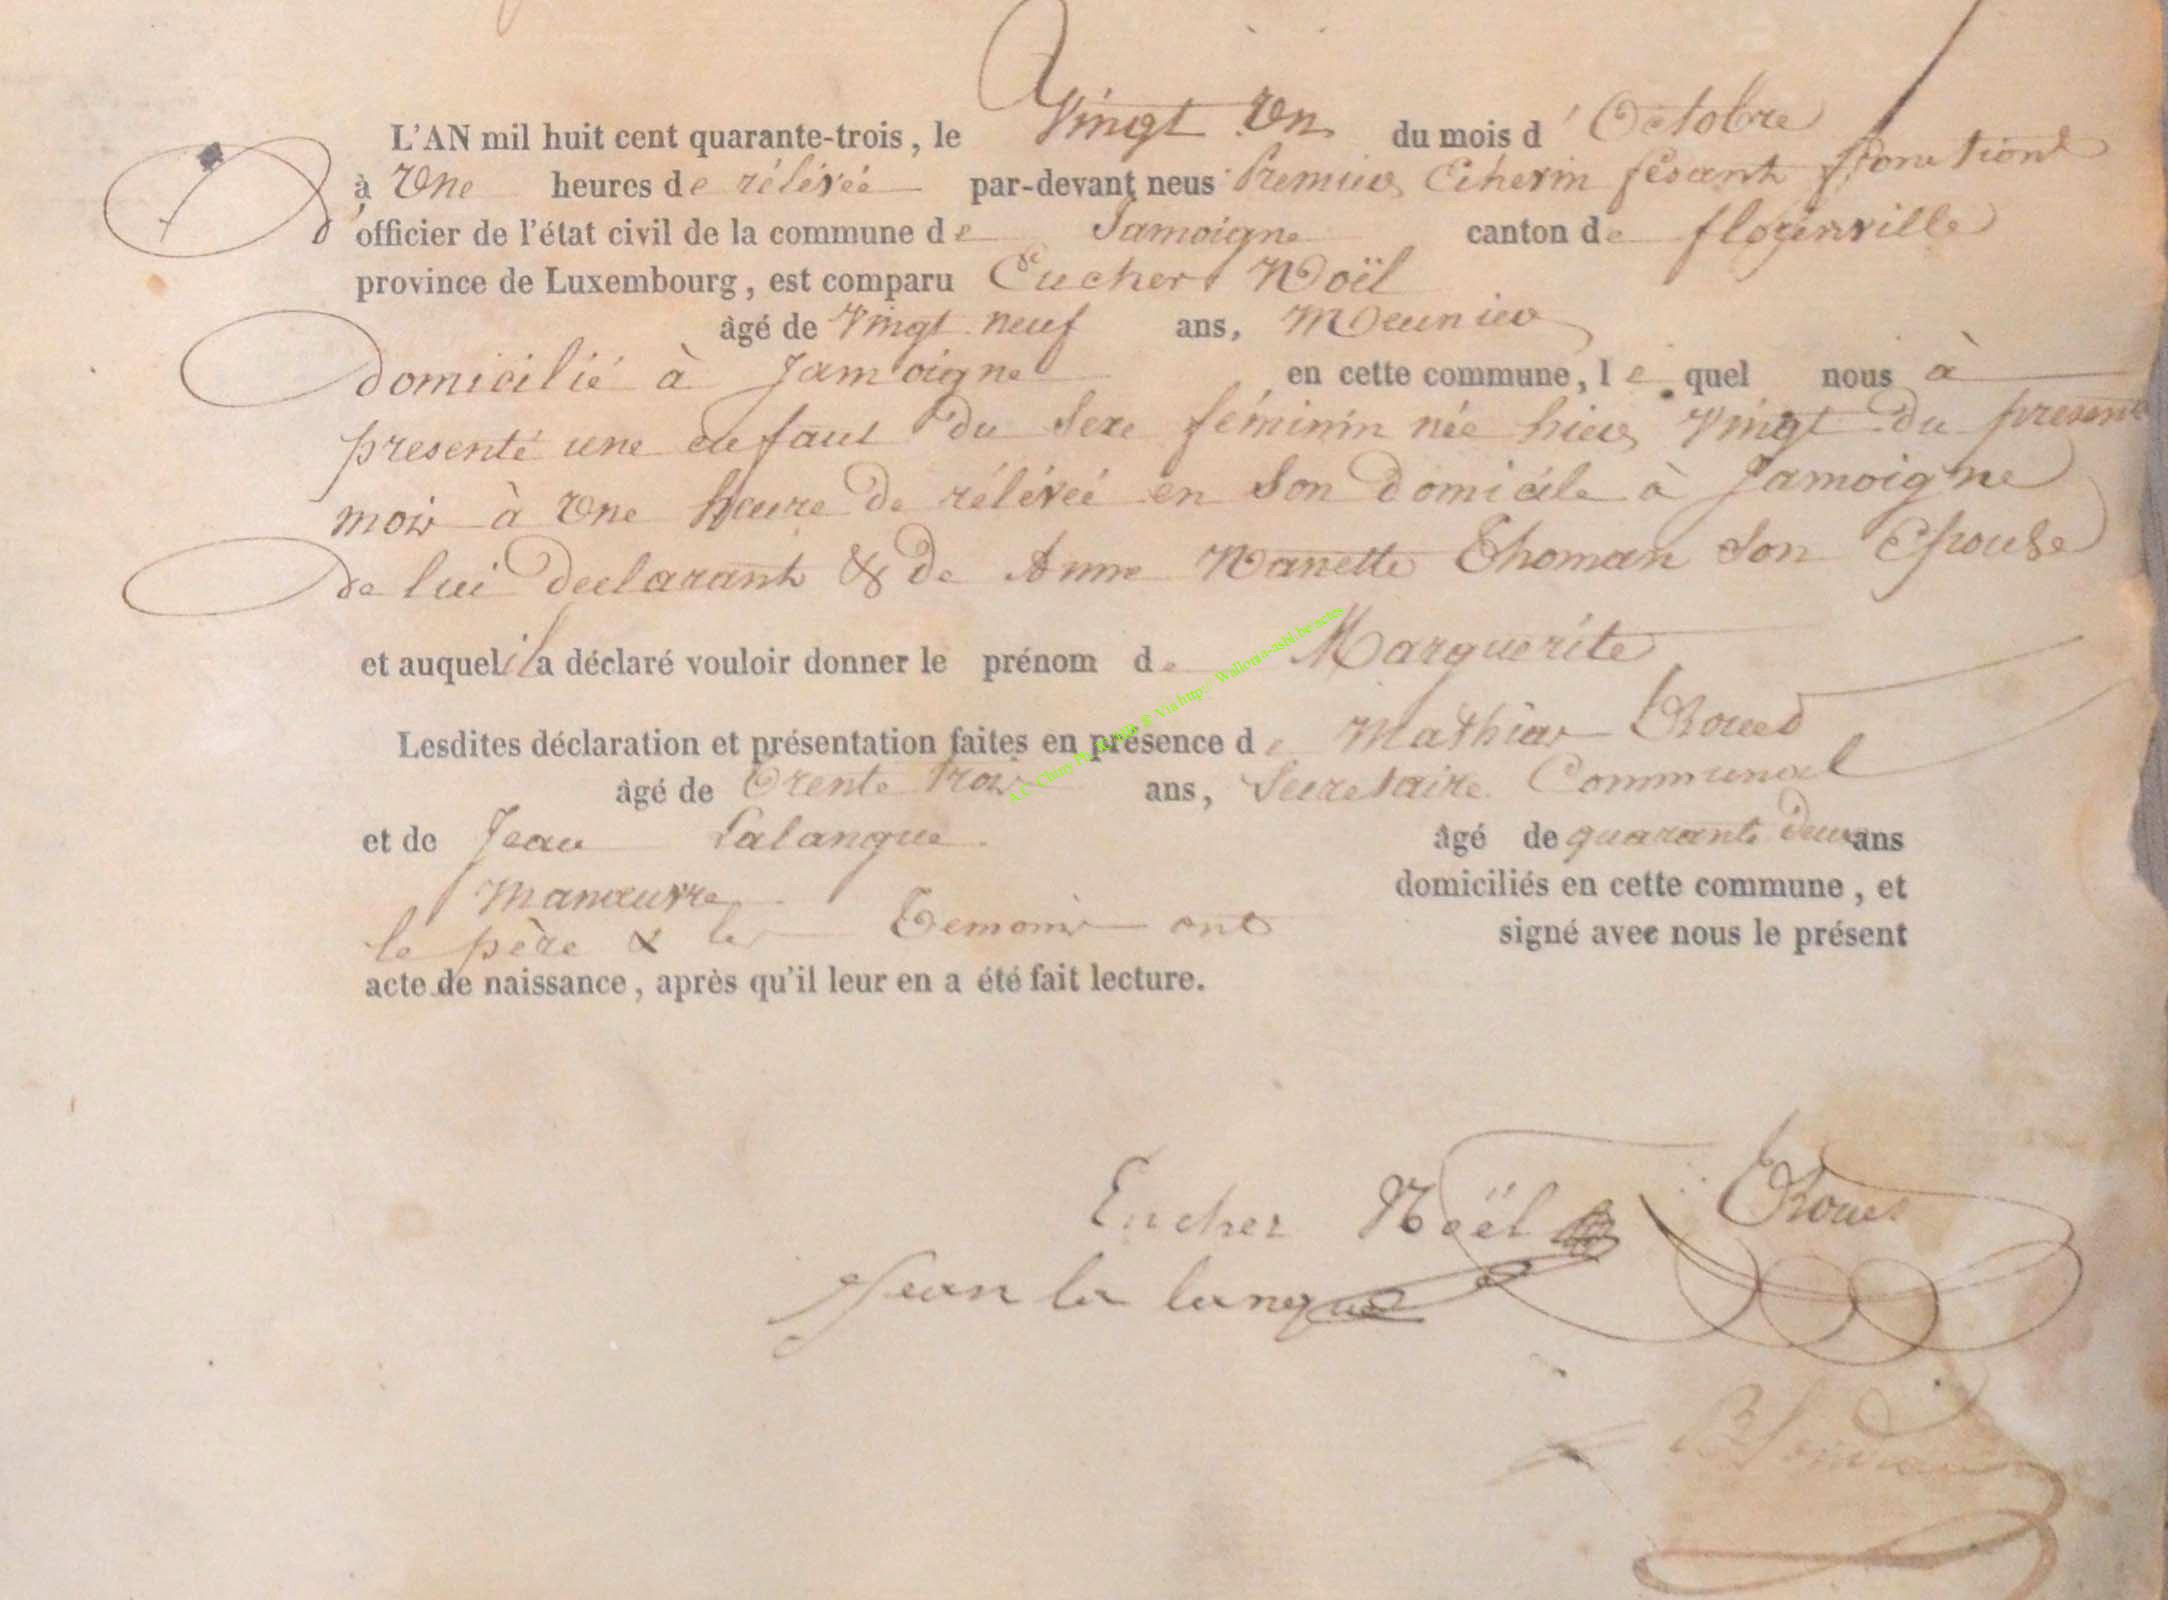 L'AN mil huit cent quarante-trois, le Vingt Un du mois d'Octobre
à Une heures de rélévée par-devant nous Premier Echevin fesant fonctions
d'officier de l'état civil de la commune de Jamoigne canton de florenville
province de Luxembourg, est comparu Eucher Noïl
âgé de Vingt neuf ans, Meunier
domicilié à Jamoigne en cette commune, lequel nous à
presenté une enfant du Sexe féminin née hier Vingt du present
mois à Une heure de rélévée en Son domicile à Jamoigne
de lui declarant & de Anne Nanette Thoman Son Epouse
et auquel il a déclaré vouloir donner le prénom de Marguerite
Lesdites déclaration et présentation faites en présence de Mathias
âgé de Trente trois ans, Secretaire Communal
et de Jean Lalangue âgé de quarante deux ans
Manœuvre domiciliés en cette commune, et
le père & les Temoins ont signé avec nous le présent
acte de naissance, après qu'il leur en a été fait lecture.
Eucher Noël
Jean la langue